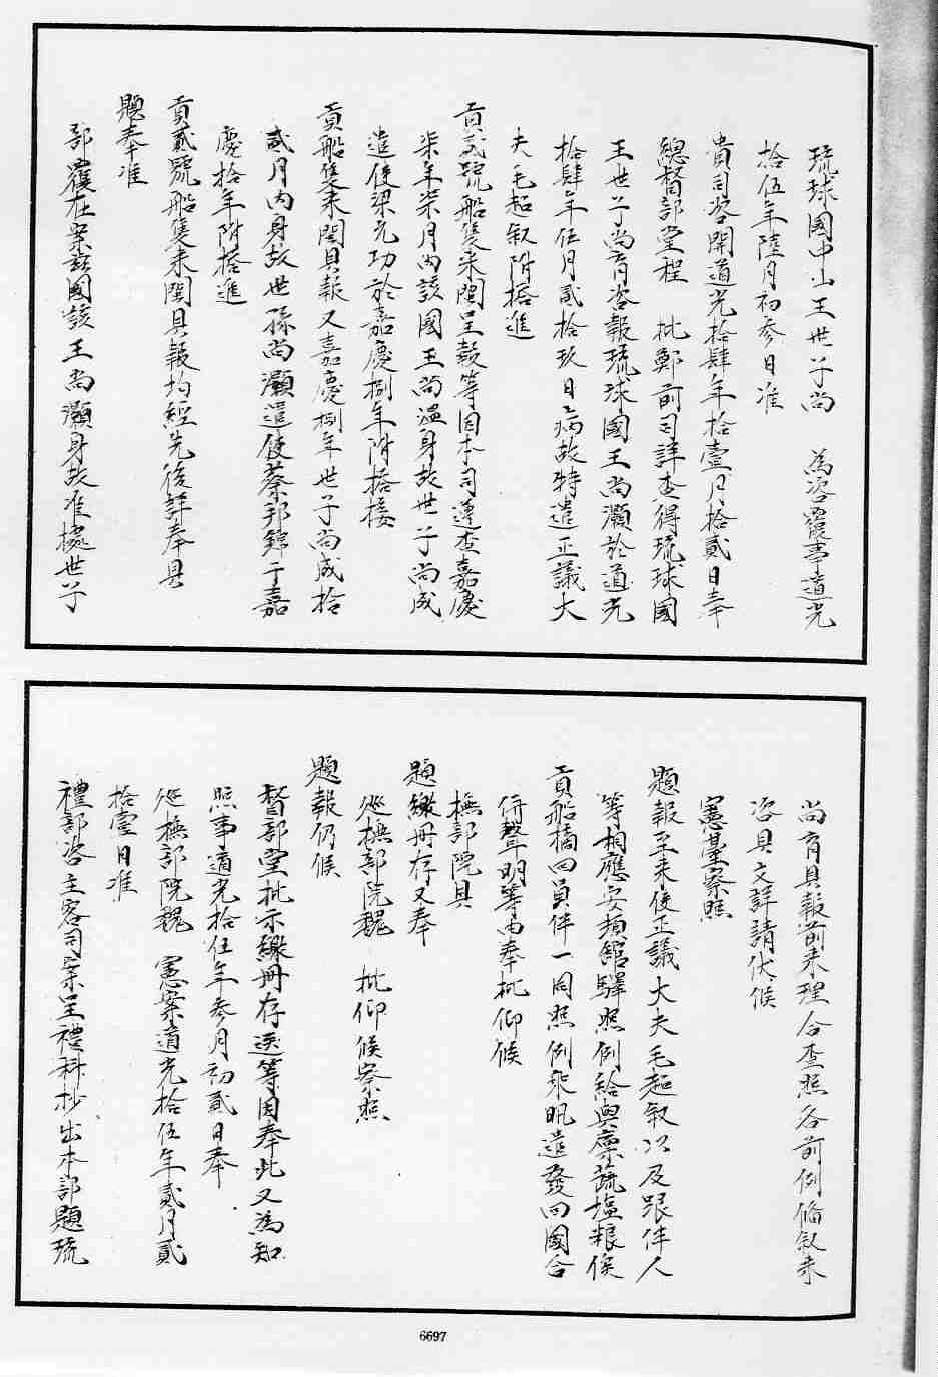 琉球國中山王世子尚　為咨覆事道光
拾伍年陸月初叁日准
貴司咨開道光拾肆年拾壹月拾貳日奉
總督部堂程　批鄭前司詳查得琉球國
王世子尚育咨報琉球國王尚灝於道光
拾肆年伍月貳拾玖日病故特遣正議大
夫毛起叙附搭進
貢貳號船隻来閩呈報等因本司遵查嘉慶
柒年柒月內該國王尚溫身故世子尚成
遣使梁允功於嘉慶捌年附搭接
貢船隻来閩具報又嘉慶捌年世子尚成拾
貳月內身故世孫尚灝遣使蔡邦錦于嘉
慶拾年附搭進
貢貳號船隻来閩具報均經先後詳奉具
題奉准
部覆在案茲國該王尚灝身故准據世子
尚育具報前来理合查照各前例俻叙来
咨具文詳請伏候
憲臺察照
題報至来使正議大夫毛起叙以及跟伴人
等相應安頓館驛照例給與廪蔬塩粮俟
貢船摘回員伴一同照例乘汛遣發回國合
併聲明等由奉批仰候
撫部院具
題繳冊存又奉
廵撫部院魏　批仰候察照
題報仍候
督部堂批示繳冊存送等因奉此又為知
照事道光拾伍年叁月初貳日奉
廵撫部院魏　憲案道光拾伍年貳月貳
拾壹日准
禮部咨主客司案呈禮科抄出本部題琉
6697